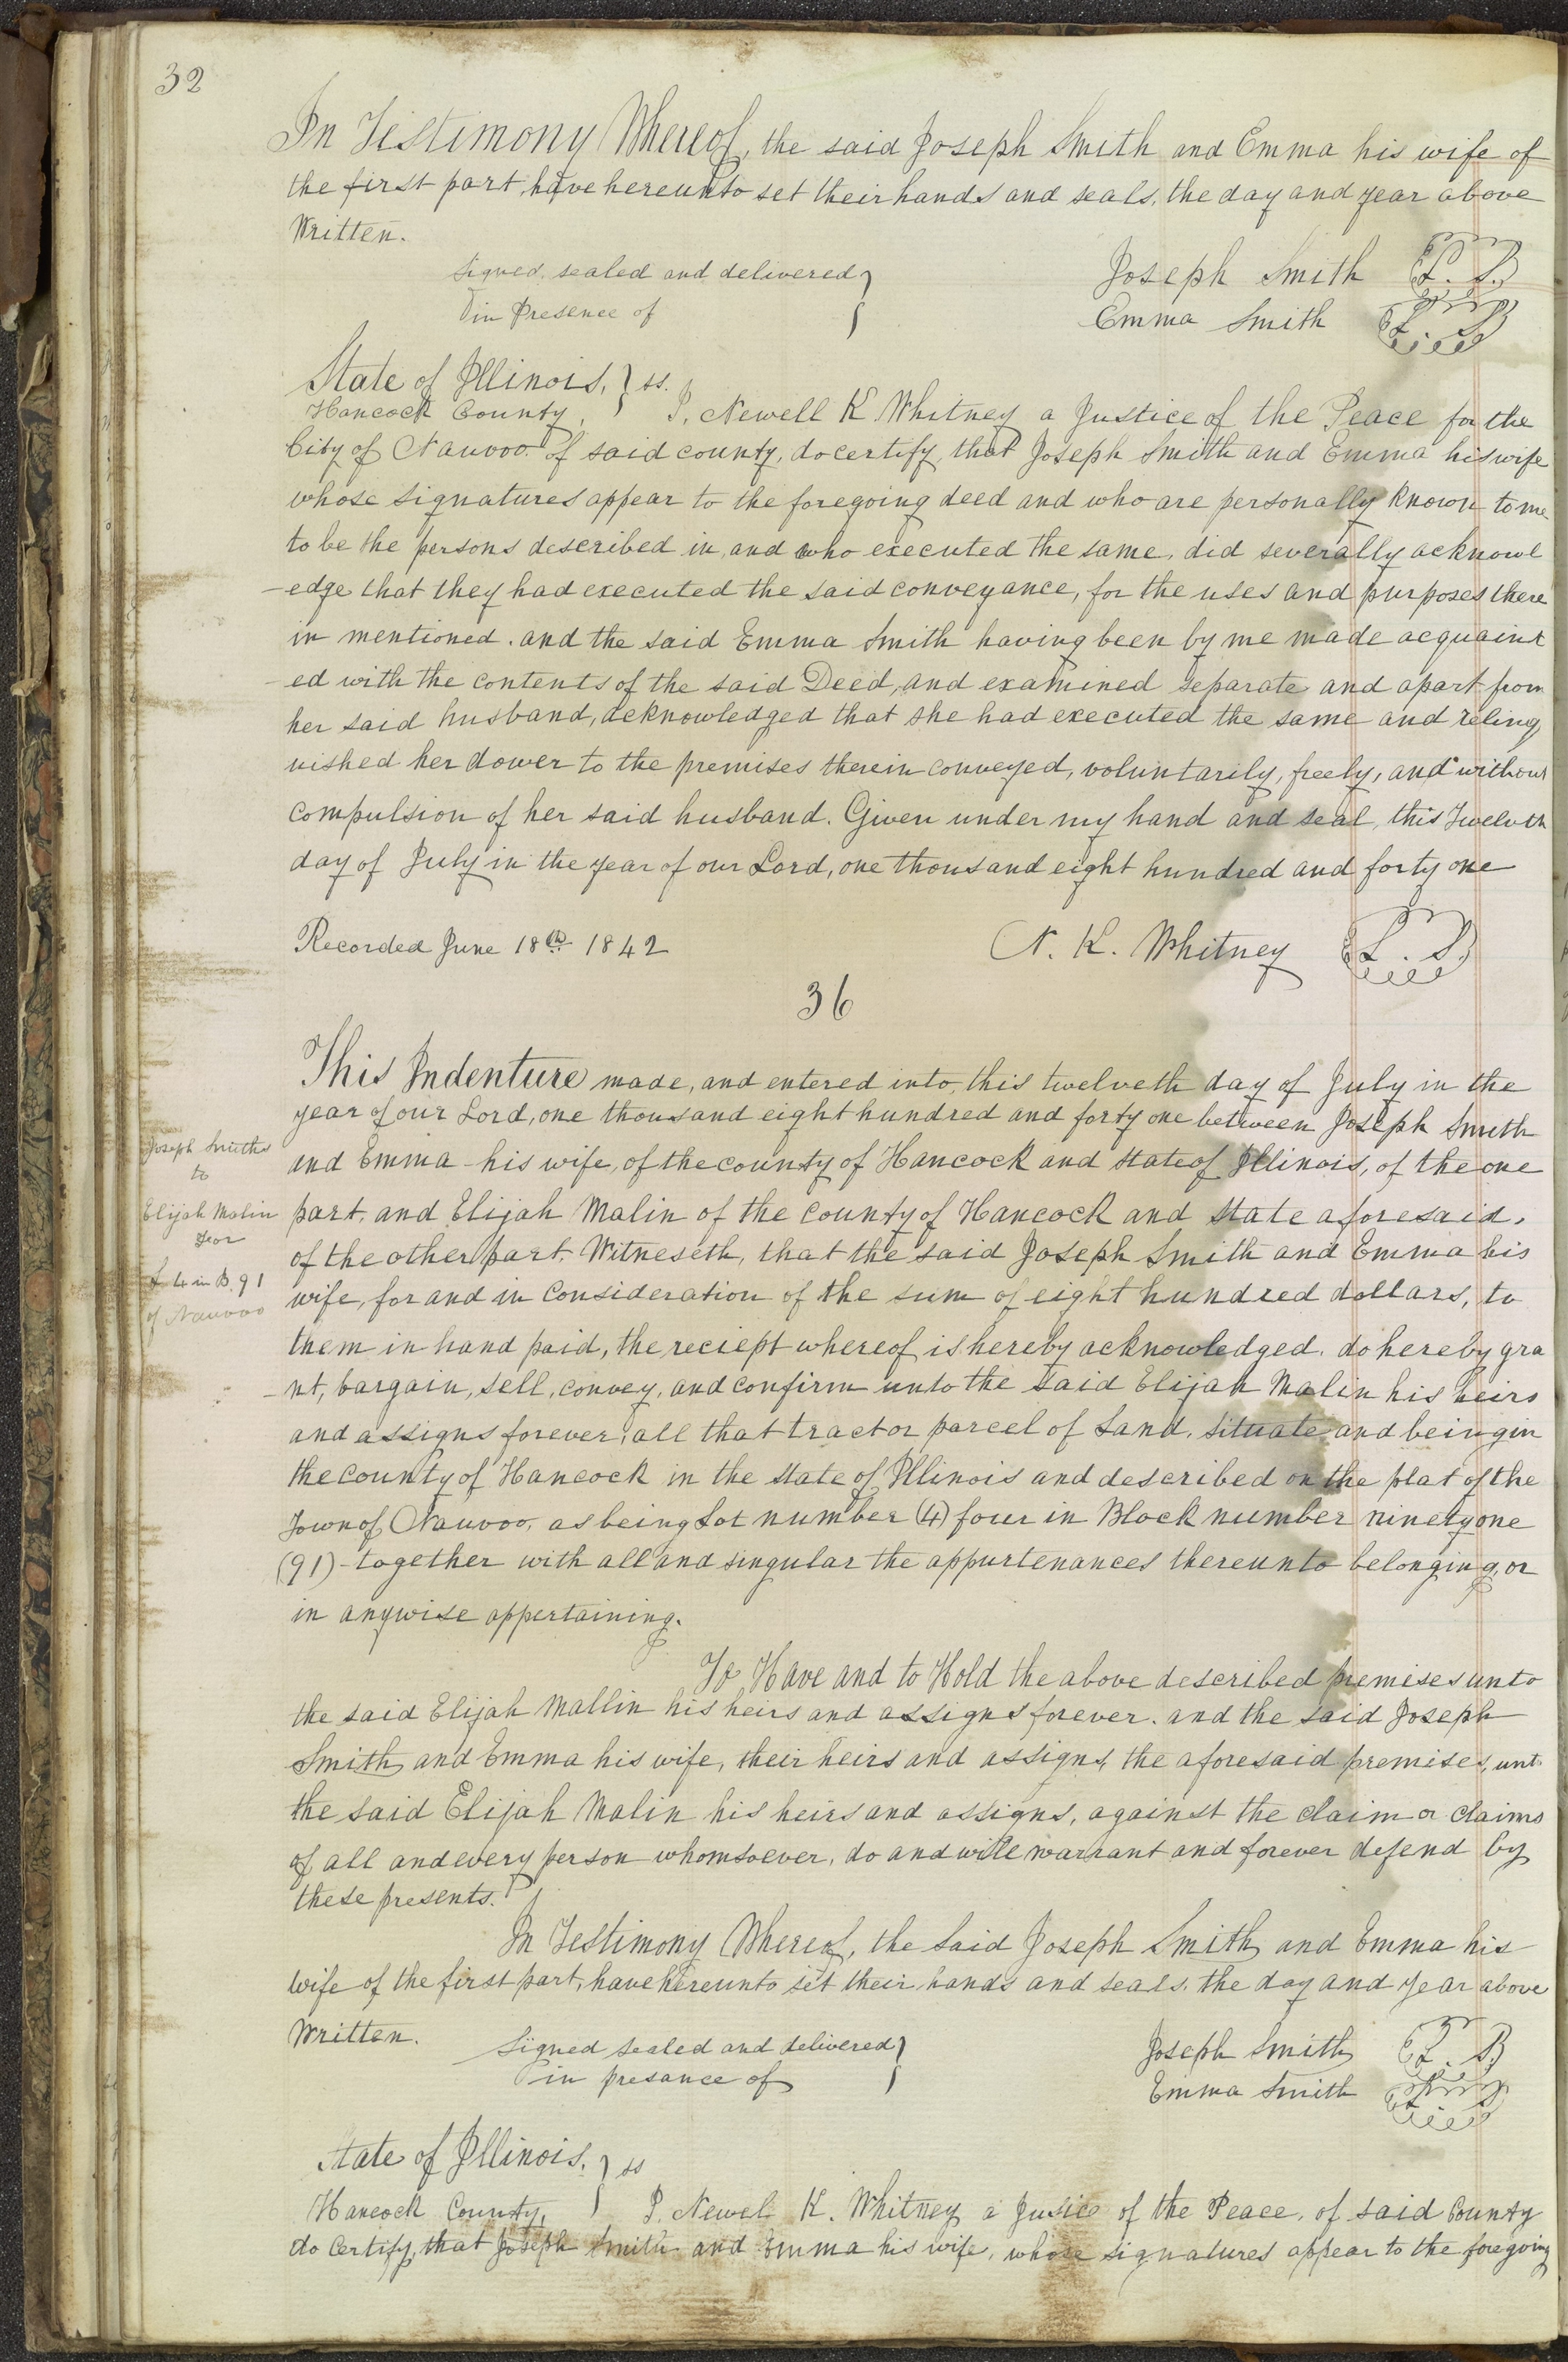 32
In Testimony Whereof, the said Joseph Smith and Emma his wife of
the first part, have hereunto set their hands and seals, the day and year above
Written.
Signed, sealed and delivered }
in Presence of
Joseph Smith L. S.
Emma Smith L. S.
State of Illinois, } ss.
Hancock County, I, Newell K Whitney a Justice of the Peace for the
City of Nauvoo of said county, do certify, that Joseph Smith and Emma his wife
whose signatures appear to the foregoing deed and who are personally known to me
to be the persons described in, and who executed the same, did severally acknowl
-edge that they had executed the said conveyance, for the uses and purposes there
in mentioned. and the said Emma Smith having been by me made acquaint
-ed with the contents of the said Deed, and examined separate and apart from
her said husband, acknowledged that she had executed the same and relinq
uished her dower to the premises therein conveyed, voluntarily, freely, and without
compulsion of her said husband. Given under my hand and seal, this Twelvth
day of July in the year of our Lord, one thousand eight hundred and forty one
Recorded June 18th 1842
N. K. Whitney L. S.
36
This Indenture made, and entered into, this twelveth day of July in the
year of our Lord, one thousand eight hundred and forty one between Joseph Smith
and Emma his wife, of the county of Hancock and state of Illinois, of the one
part, and Elijah Malin of the county of Hancock and state aforesaid,
of the other part. Witneseth, that the said Joseph Smith and Emma his
wife, for and in consideration of the sum of eight hundred dollars, to
them in hand paid, the reciept whereof is hereby acknowledged, do hereby gra
-nt, bargain, sell, convey, and confirm unto the said Elijah Malin his heirs
and assigns forever, all that tract or parcel of Land, situate and being in
the county of Hancock in the state of Illinois and described on the plat of the
Town of Nauvoo, as being Lot number (4) four in Block number ninety one
(91) - together with all and singular the appurtenances thereunto belonging, or
in anywise appertaining.
Joseph Smith
to
Elijah Malin
for
L 4 in B. 91
of Nauvoo
To Have and to Hold the above described premises unto
the said Elijah Mallin his heirs and assigns forever. and the said Joseph
Smith and Emma his wife, their heirs and assigns, the aforesaid premises, unt
the said Elijah Malin his heirs and assigns, against the claim or claims
of all and every person whomsoever, do and will warrant and forever defend by
these presents.
In Testimony Whereof, the said Joseph Smith and Emma his
wife of the first part, have hereunto set their hands and seals, the day and year above
Written.
Signed sealed and delivered }
in presance of
Joseph Smith L. S.
Emma Smith L. S.
State of Illinois, } ss
Hancock County, I, Newel K. Whitney a Justice of the Peace, of said County
do Certify, that Joseph Smith and Emma his wife, whose signatures appear to the foregoing